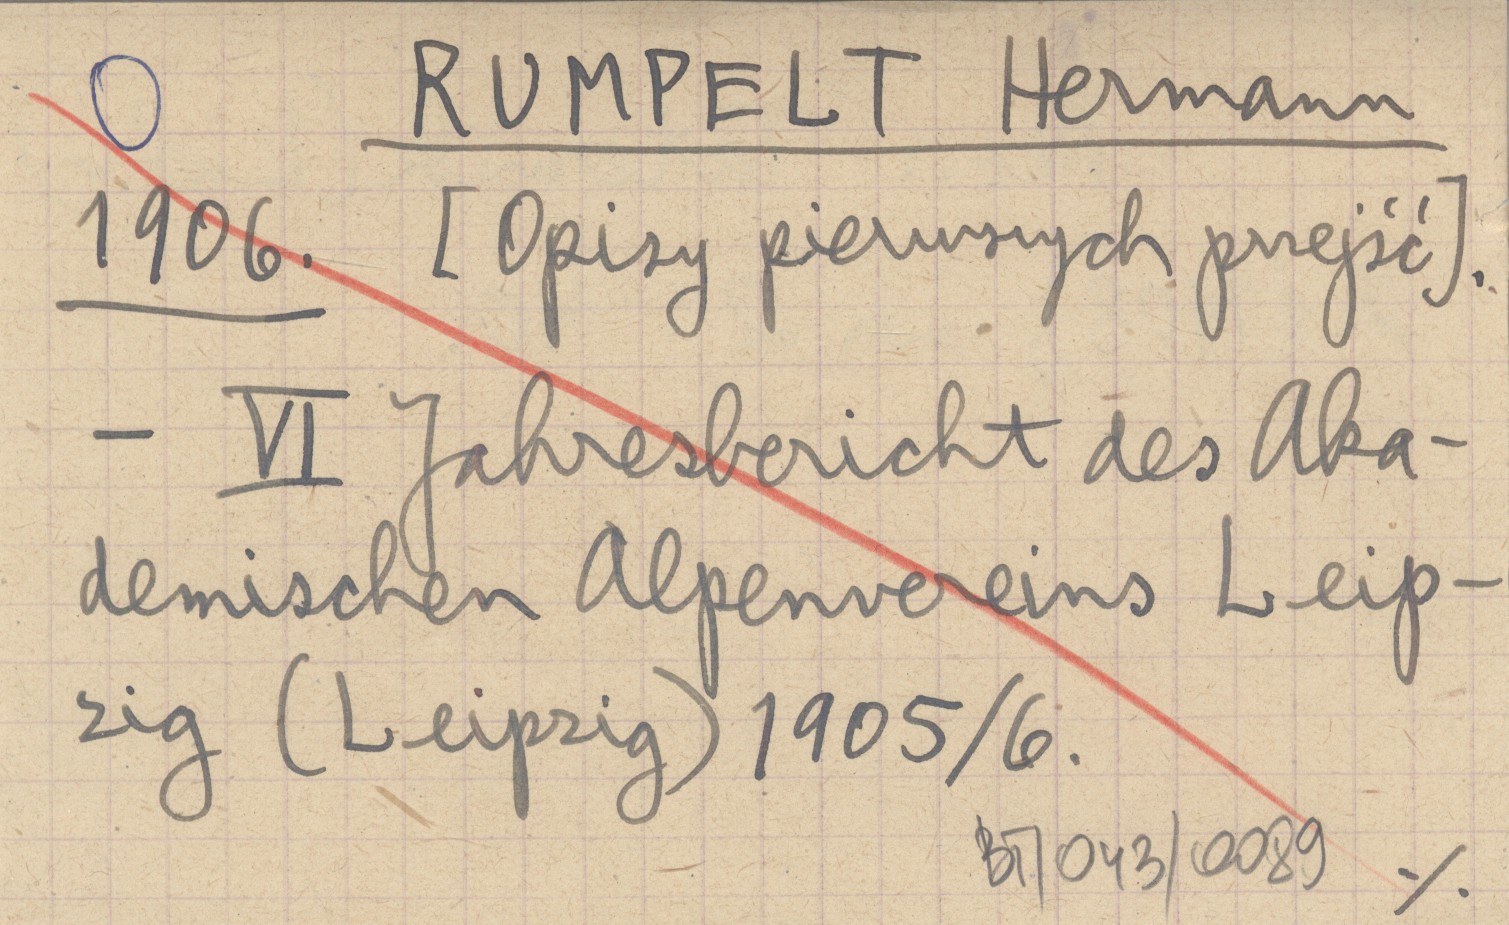 O RUMPELT Hermann
1906. [Opisy pierwszych przejść].
- VI Jahresbericht des Aka-
demischen Alpenvereins Leip-
zig (Leipzig) 1905/6.
BT/043/0089 ./.